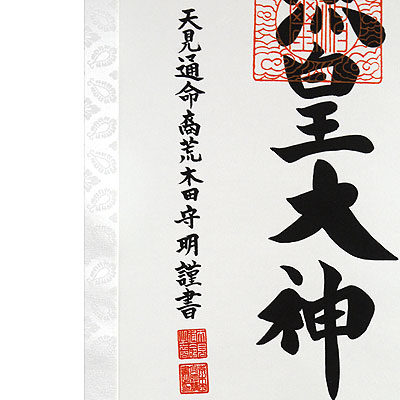 皇大神
天見通命裔荒木田守明謹書